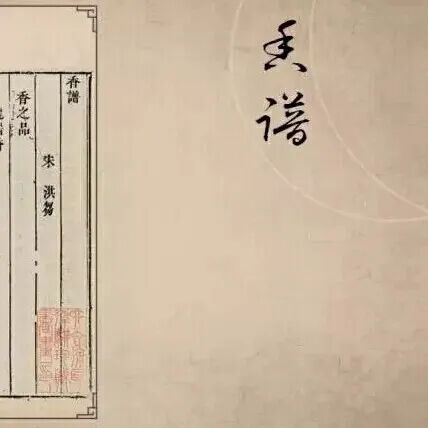 香谱
香譜
宋 洪芻
香之品